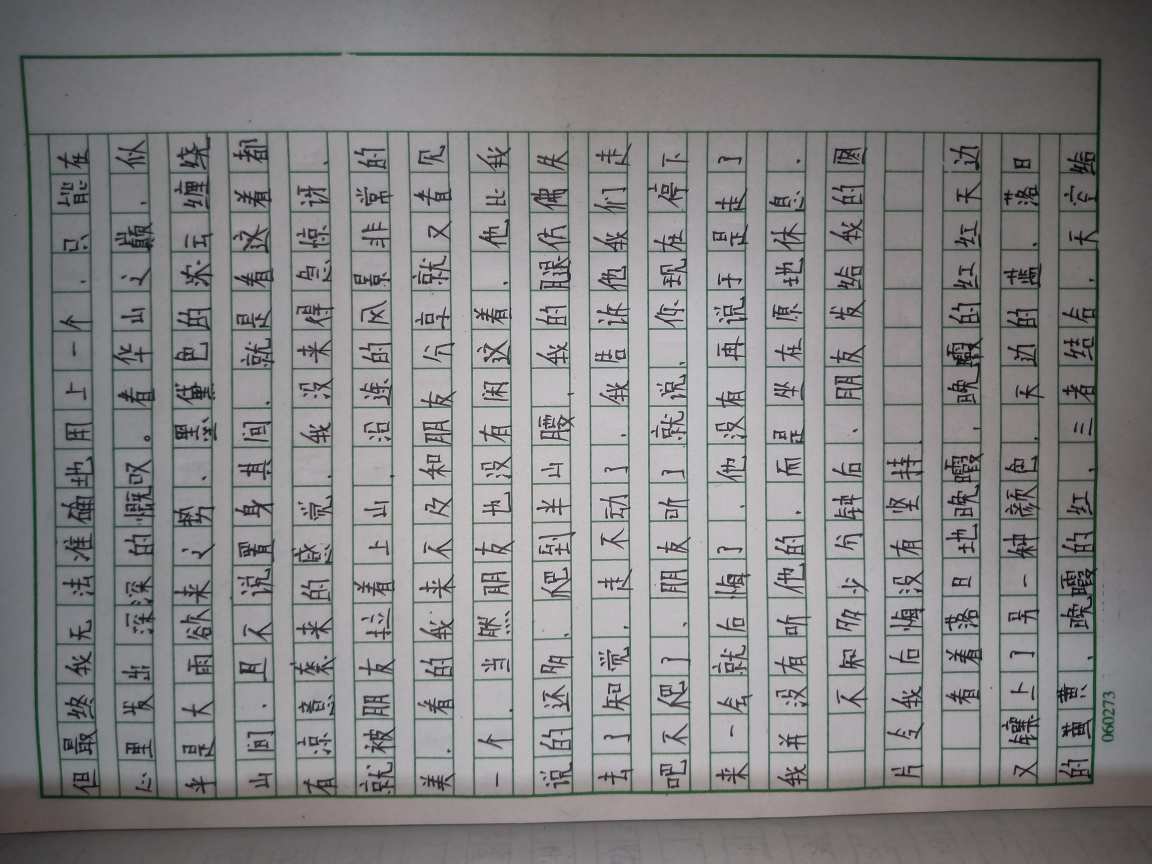 但最终我无法准确地用上一个,只能在
心里发出深深的慨叹。看华山之巅,似
乎是大雨欲来之势、黑黛色的浓云缠绕
山间,且不说置身其间,就是看这着都
有凉意袭来的感觉,我没来得急惊讶、
就被朋友拉着上山,沿途的风景非常的
美,看的我来不及和朋友分享就又看见
一个,当照朋友也没有闲这着、他比我
说的还多、爬到半山腰,我的腿仿佛失
去了知觉,走不动了,我告诉他我们走
吧不爬了、朋友听了就说、你现在停下
来一会就后悔了,他没有再说于是走了
我并没有听他的,而是坐在原地休息,
不知多少分钟后、朋友发给我的图
片令我后悔没有坚持,
看着落日地晚霞,晚霞的红红天边
又镶上了另一种颜色,天边的蓝、落日
的黄黄、晚霞的红、三者结合,天空给
060273